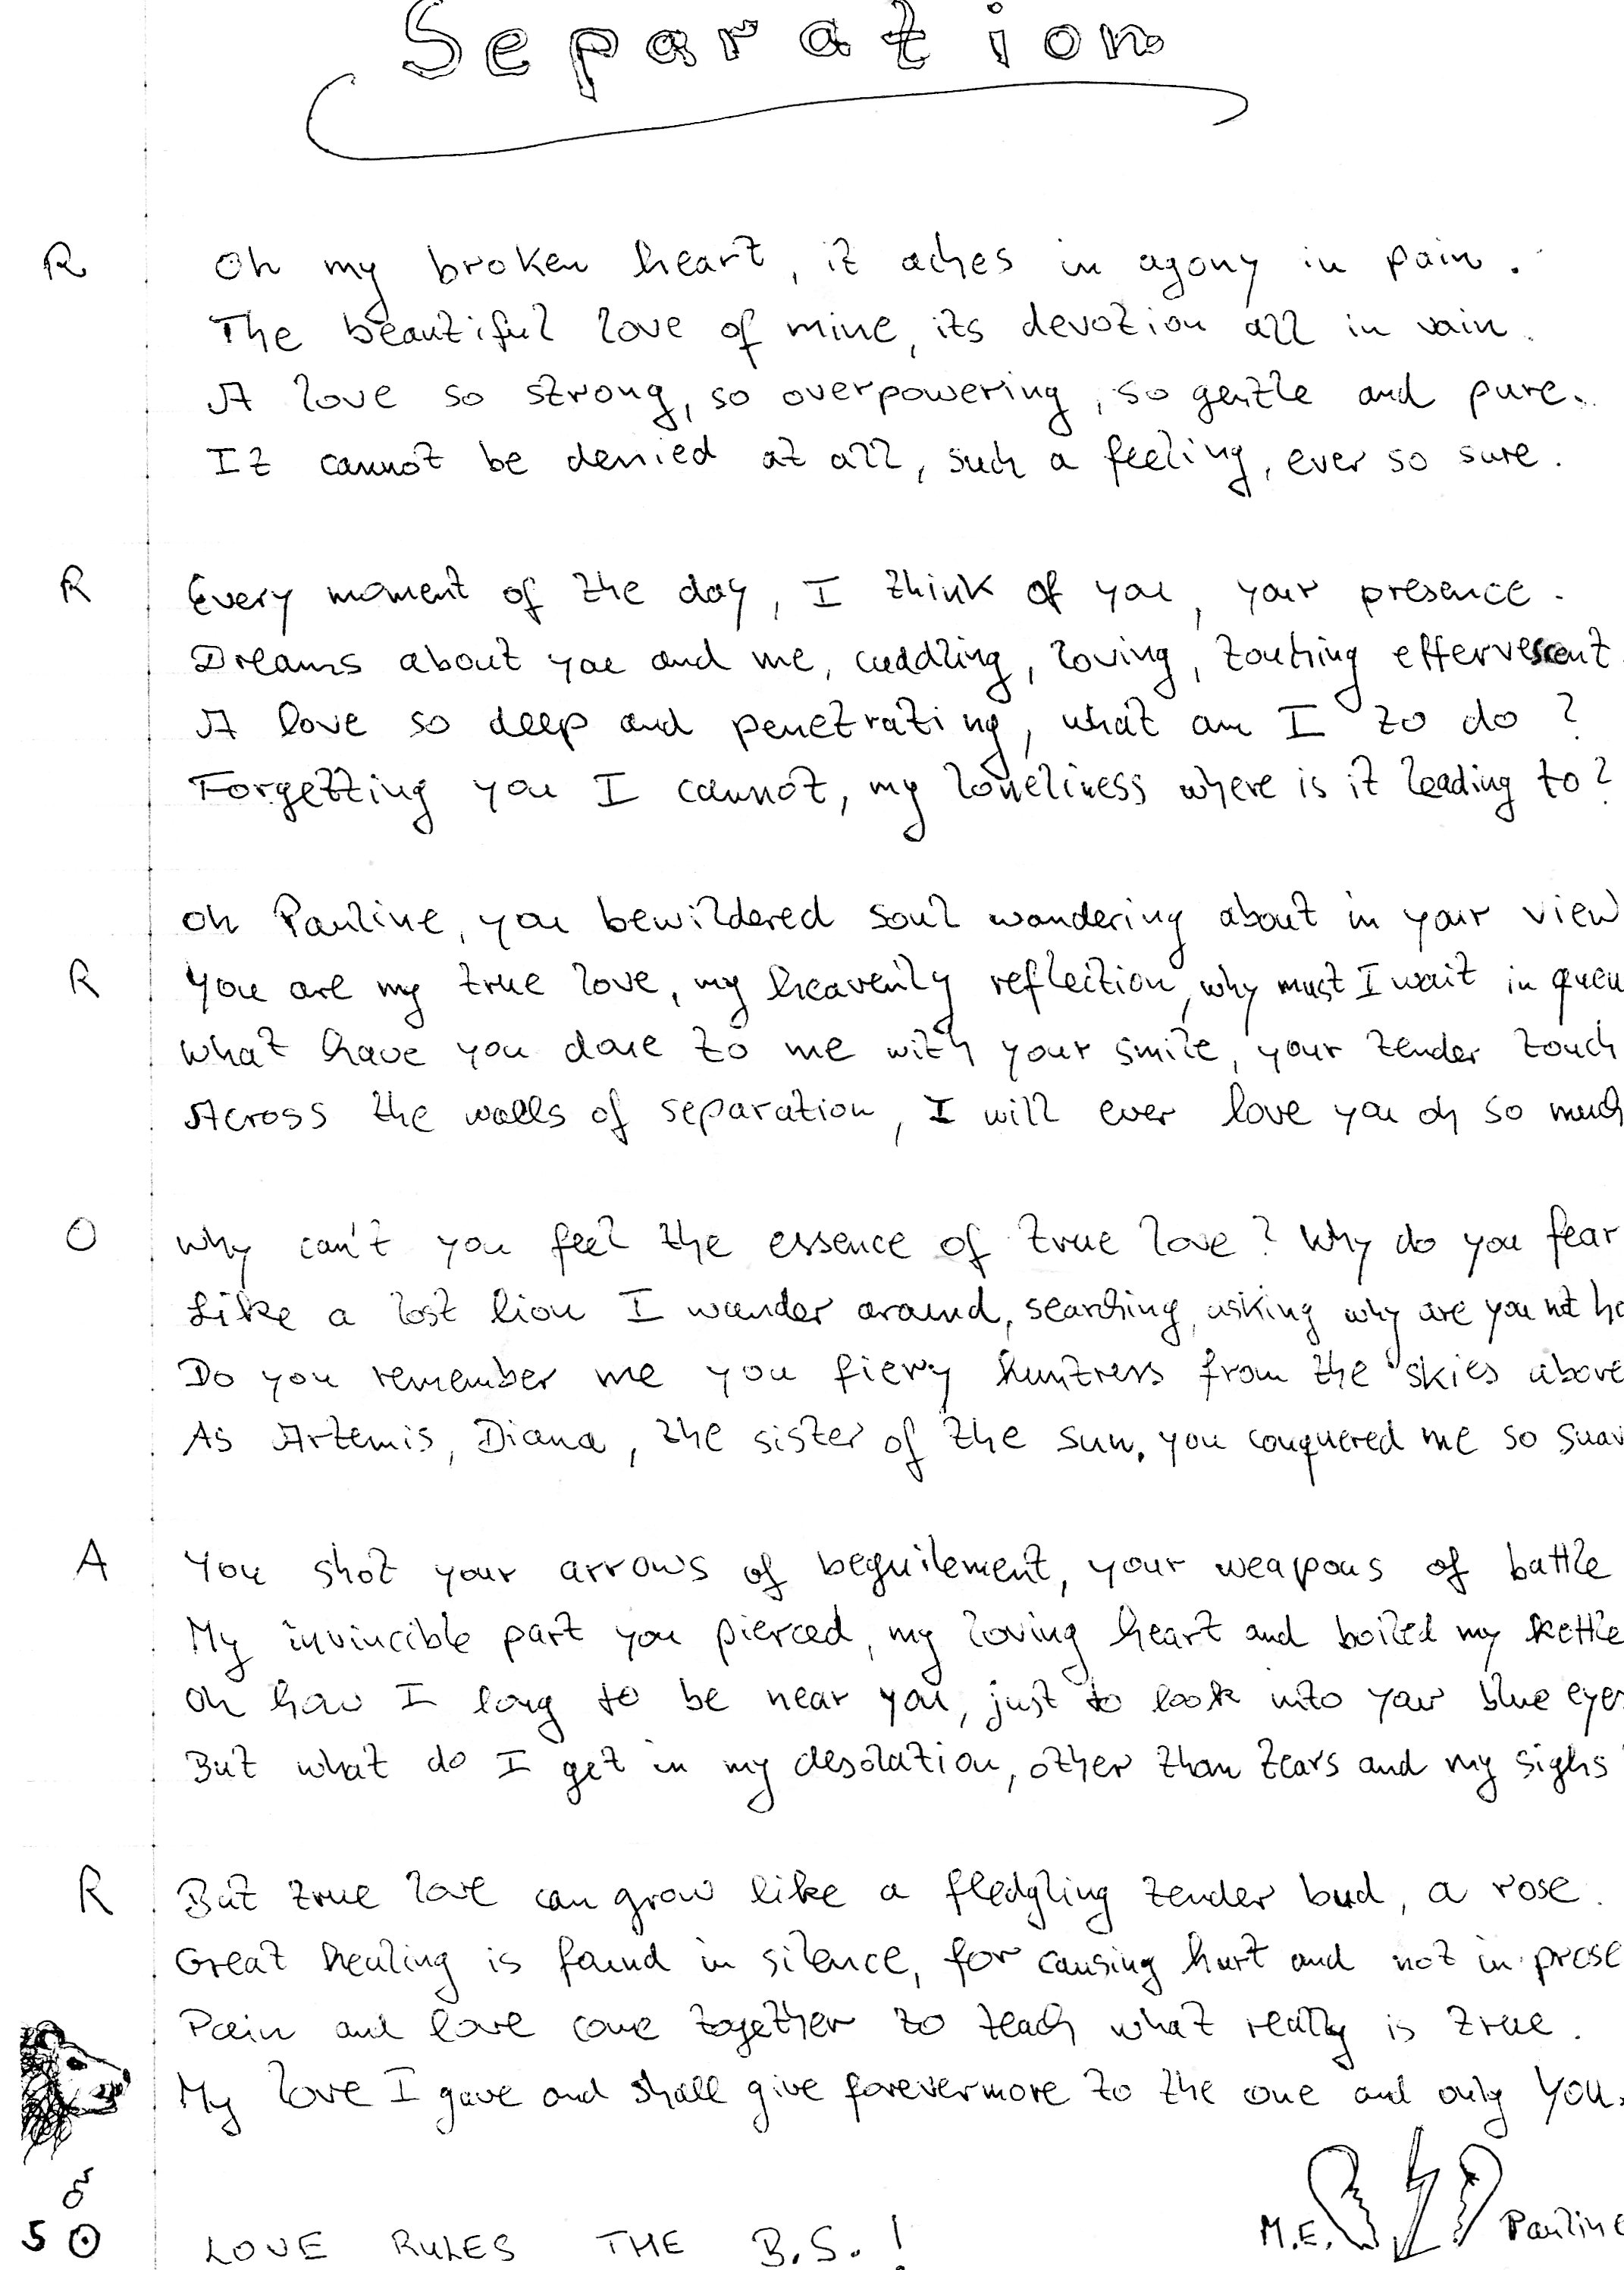 Separation
R Oh my broken heart, it aches in agony in pain.
The beautiful love of mine, its devotion all in vain.
A love so strong, so overpowering, so gentle and pure.
It cannot be denied at all, such a feeling, ever so sure.
R Every moment of the day, I think of you, your presence.
Dreams about you and me, cuddling, loving, touching effervescent
A love so deep and penetrating, what am I to do?
Forgetting you I cannot, my loneliness where is it leading to?
Oh Pauline, you bewildered soul wandering about in your view
R You are my true love, my heavenly reflection, why must I wait in queu
What have you done to me with your smile, your tender touch
Across the walls of separation, I will ever love you oh so much
O Why can't you feel the essence of true love? Why do you fear
Like a lost lion I wander around, searching, asking why are you not he
Do you remember me you fiery huntress from the skies above
As Artemis, Diana, the sister of the sun, you conquered me so suav
A You shot your arrows of beguilement, your weapons of battle
My invincible part you pierced, my loving heart and boiled my kettle
Oh how I long to be near you, just to look into your blue eyes
But what do I get in my desolation, other than tears and my sighs
R But true love can grow like a fledgling tender bud, a rose.
Great healing is found in silence, for causing hurt and not in prose
Pain and love come together to teach what really is true.
My love I gave and shall give forevermore to the one and only You.
M.E. Pauline
5 LOVE RULES THE B.S.!